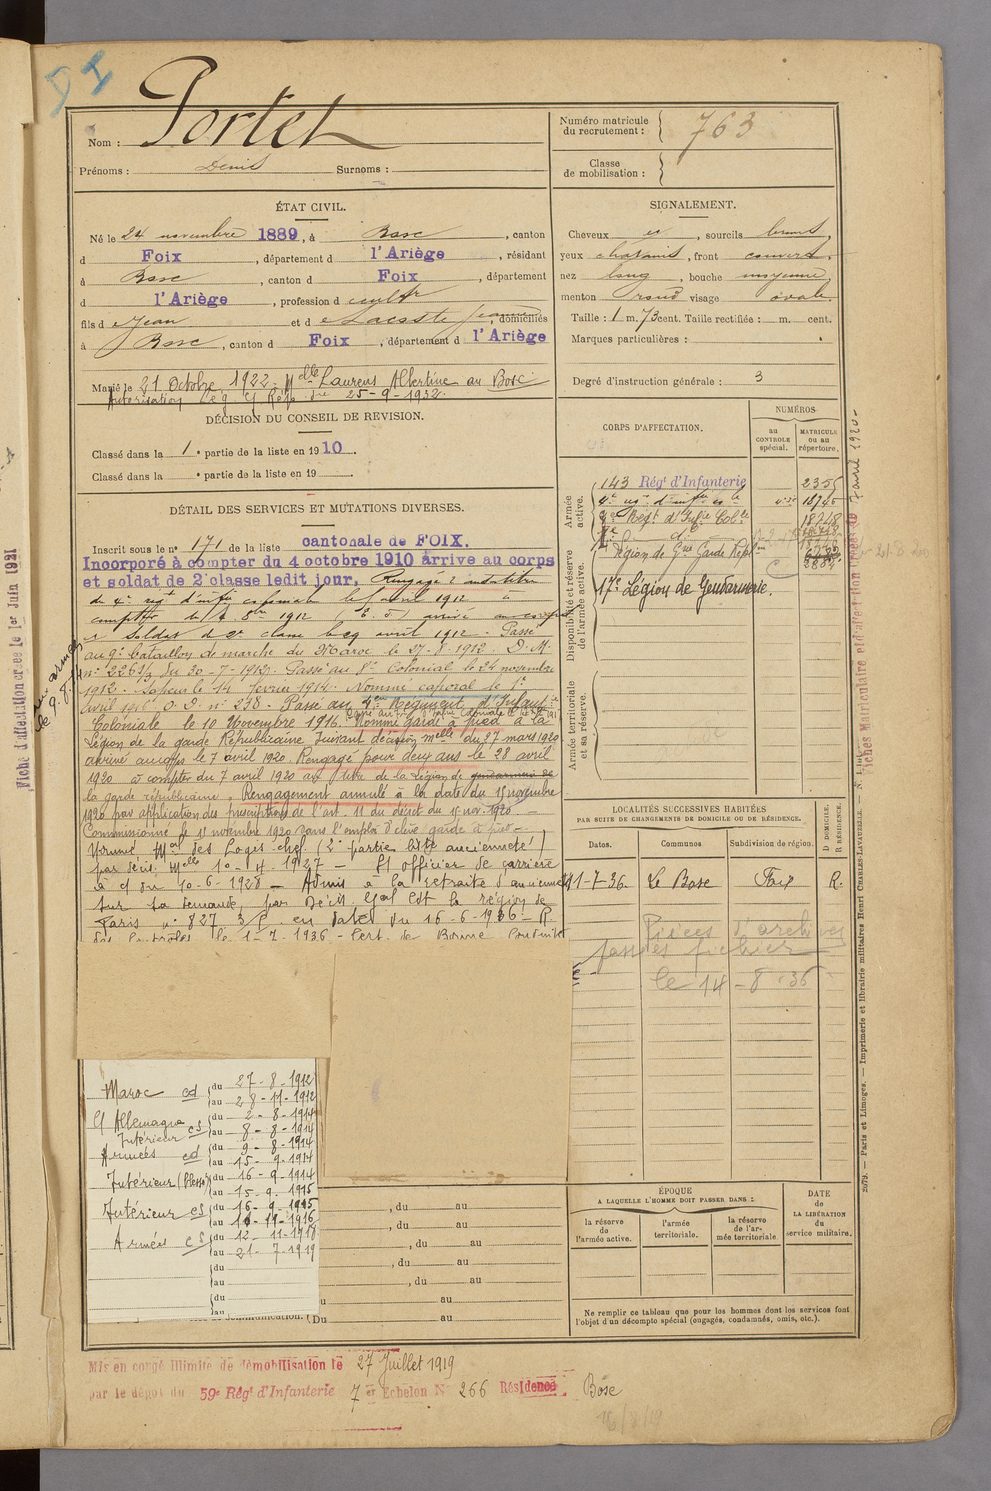 DI
Nom : Portet
Prénoms : Denis Surnoms :
Numéro matricule du recrutement : 763
Classe de mobilisation :
ÉTAT CIVIL.
Né le 24 novembre 1889, à Bosc, canton
d Foix, département d l'Ariège, résidant
à Bosc, canton d Foix, département
d l'Ariège, profession d cultr
fils d e Jean et d e Lacoste Jeanne, domiciliés
à Bosc, canton d Foix, département d l'Ariège
Marié le 21 Octobre 1922 Melle Laurens Albertine au Bosc
Autorisation Lég. G Rép. du 25-9-1922.
SIGNALEMENT.
Cheveux et, sourcils bruns,
yeux chatains, front couvert,
nez long, bouche moyenne,
menton rond visage ovale.
Taille : 1 m. 73 cent. Taille rectifiée : m. cent.
Marques particulières :
Degré d'instruction générale : 3
DÉCISION DU CONSEIL DE REVISION.
Classé dans la 1e partie de la liste en 1910.
Classé dans la e partie de la liste en 19
DÉTAIL DES SERVICES ET MUTATIONS DIVERSES.
Inscrit sous le no 171 de la liste cantonale de FOIX.
Incorporé à compter du 4 octobre 1910 arrive au corps
et soldat de 2e classe ledit jour, Rengagé
du 4e régt d'infie coloniale le avril 1912 à
compter du 4 8bre 1912 arrivé au corps
Soldat de 2e classe le 29 avril 1912. Passé
au 9e bataillon de marche du Maroc le 27-8-1912. D. M.
no 2261/3 du 30-7-1912. Passé au 8e Colonial le 24 novembre
1912. Sapeur le 14 février 1914. Nommé caporal le 1er
avril O. D. no 238. Passé au Régiment d'Infant.ie
Coloniale le 10 Novembre 1916. Nommé garde à pied à la
Légion de la garde Républicaine suivant décision melle du 27 mars 1920
arrivé au corps le 7 avril 1920. Rengagé pour deux ans le 28 avril
1920 à compter du 7 avril 1920 au titre de la Légion de gendarmerie de
la garde républicaine. Rengagement annulé à la date du 15 novembre
1920 par application des prescriptions de l'art. 11 du décret du 15 nov. 1920. —
Commissionné le 15 novembre 1920 dans l'emploi d'élève garde à pied —
Nommé Mal des Logis chef (2e partie liste ancienneté)
par décis. Melle 10-4-1927 — St officier de carrière
à ct du 10-6-1928 — Admis à la retraite d'ancienneté
sur sa demande, par Décis. Gal Cdt la région de
Paris no 827 3/P. en date du 16-6-1936 — R.
des contrôles le 1-7-1936 — Cert. de Bonne Conduite
CORPS D'AFFECTATION.
NUMÉROS
au CONTROLE spécial.
MATRICULE ou au répertoire.
Armée active.
143 Régt d'Infanterie 2355
4e régt d'infie cle 18746
8e Régt d'Infie Colle 18748
Légion de Gde Garde Républ.ne
17e Légion de Gendarmerie.
Disponibilité et réserve de l'armée active.
Armée territoriale et sa réserve.
LOCALITÉS SUCCESSIVES HABITÉES
PAR SUITE DE CHANGEMENTS DE DOMICILE OU DE RÉSIDENCE.
Dates. Communes Subdivision de région. D DOMICILE. R RÉSIDENCE.
1-7-36. Le Bosc Foix R.
Pièces d'archives
passées fichier
le 14-8-36
Maroc cd du 27-8-1912
au 28-11-1912
Ct Allemagne
Intérieur cs du 2-8-1914
au 8-8-1914
Armées cd du 9-8-1914
au 15-9-1914
Intérieur (blessé) du 16-9-1914
au 15-9-1915
Intérieur cs du 16-9-1915
au 11-11-1916
Armées cs du 12-11-1918
au 21-7-1919
du
au
du
au
, du au
, du au
, du au
, du au
, du au
du au
Du au
ÉPOQUE
A LAQUELLE L'HOMME DOIT PASSER DANS :
la réserve de l'armée active.
l'armée territoriale.
la réserve de l'armée territoriale
DATE de LA LIBÉRATION du service militaire.
Ne remplir ce tableau que pour les hommes dont les services font
l'objet d'un décompte spécial (engagés, condamnés, omis, etc.).
Mis en congé illimité de démobilisation le 27 Juillet 1919
par le dépôt du 59e Régt d'Infanterie 7e Echelon No 266 Résidence Bosc
Fiche d'affectation créée le 1er Juin 1931
2679. — Paris et Limoges. — Imprimerie et librairie militaires Henri CHARLES-LAVAUZELLE.